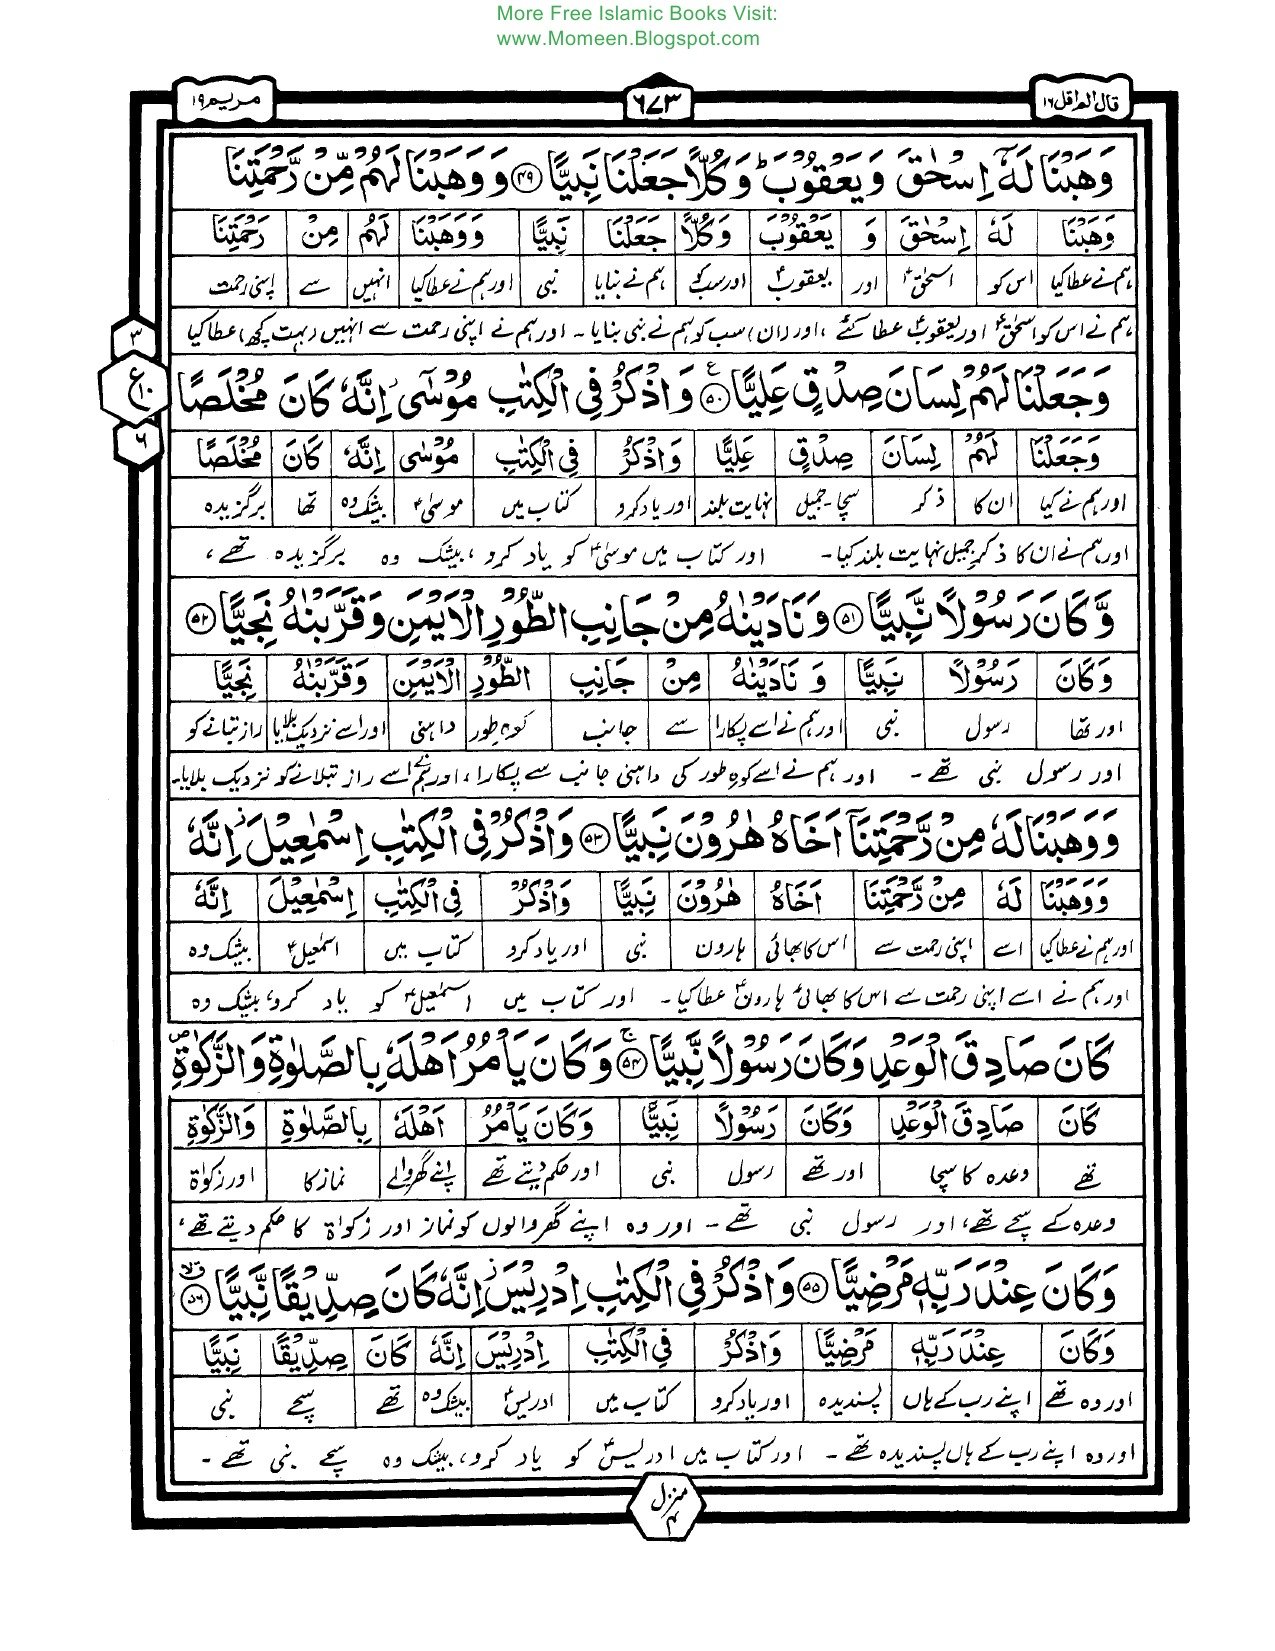 More Free Islamic Books Visit:
www.Momeen.Blogspot.com
قال الم اقل ١٦
٦٧٣
مريم ١٩
وَهَبْنَا لَهٗٓ اِسْحٰقَ وَيَعْقُوْبَ ؕ وَكُلًّا جَعَلْنَا نَبِيًّا ۝۴۹ وَوَهَبْنَا لَهُمْ مِّنْ رَّحْمَتِنَا
وَهَبْنَا لَهٗٓ اِسْحٰقَ وَ يَعْقُوْبَ وَكُلًّا جَعَلْنَا نَبِيًّا وَوَهَبْنَا لَهُمْ مِنْ رَحْمَتِنَا
ہم نے عطا کیا اس کو اسحٰقؑ اور یعقوبؑ اور سب کو ہم نے بنایا نبی اور ہم نے عطا کیا انہیں سے اپنی رحمت
ہم نے اس کو اسحٰقؑ اور یعقوبؑ عطا کئے، اور (ان) سب کو ہم نے نبی بنایا۔ اور ہم نے اپنی رحمت سے انہیں (بہت کچھ) عطا کیا
٣
ع ١٠
٦
وَجَعَلْنَا لَهُمْ لِسَانَ صِدْقٍ عَلِيًّا ۝۵۰ ع وَاذْكُرْ فِي الْكِتٰبِ مُوْسٰٓى ؗ اِنَّهٗ كَانَ مُخْلَصًا
وَجَعَلْنَا لَهُمْ لِسَانَ صِدْقٍ عَلِيًّا وَاذْكُرْ فِي الْكِتٰبِ مُوْسٰى اِنَّهٗ كَانَ مُخْلَصًا
اور ہم نے کیا ان کا ذکر سچا۔جمیل نہایت بلند اور یاد کرو کتاب میں موسیٰؑ بیشک وہ تھا برگزیدہ
اور ہم نے ان کا ذکرِ جمیل نہایت بلند کیا۔ اور کتاب میں موسیٰؑ کو یاد کرو، بیشک وہ برگزیدہ تھے،
وَّكَانَ رَسُوْلًا نَّبِيًّا ۝۵۱ وَنَادَيْنٰهُ مِنْ جَانِبِ الطُّوْرِ الْاَيْمَنِ وَقَرَّبْنٰهُ نَجِيًّا ۝۵۲
وَكَانَ رَسُوْلًا نَبِيًّا وَ نَادَيْنٰهُ مِنْ جَانِبِ الطُّوْرِ الْاَيْمَنِ وَقَرَّبْنٰهُ نَجِيًّا
اور تھا رسول نبی اور ہم نے اسے پکارا سے جانب کوہِ طور داہنی اور اسے نزدیک بلایا راز بتانے کو
اور رسول نبی تھے۔ اور ہم نے اسے کوہِ طور کی داہنی جانب سے پکارا، اور ہم نے اسے راز بتلانے کو نزدیک بلایا۔
وَوَهَبْنَا لَهٗ مِنْ رَّحْمَتِنَآ اَخَاهُ هٰرُوْنَ نَبِيًّا ۝۵۳ وَاذْكُرْ فِي الْكِتٰبِ اِسْمٰعِيْلَ ؗ اِنَّهٗ
وَوَهَبْنَا لَهٗ مِنْ رَّحْمَتِنَا اَخَاهُ هٰرُوْنَ نَبِيًّا وَاذْكُرْ فِي الْكِتٰبِ اِسْمٰعِيْلَ اِنَّهٗ
اور ہم نے عطا کیا اسے اپنی رحمت سے اس کا بھائی ہارون نبی اور یاد کرو کتاب میں اسمٰعیلؑ بیشک وہ
اور ہم نے اسے اپنی رحمت سے اس کا بھائی ہارونؑ عطا کیا۔ اور کتاب میں اسمٰعیلؑ کو یاد کرو، بیشک وہ
كَانَ صَادِقَ الْوَعْدِ وَكَانَ رَسُوْلًا نَّبِيًّا ۝۵۴ ج وَكَانَ يَاْمُرُ اَهْلَهٗ بِالصَّلٰوةِ وَالزَّكٰوةِ ص
كَانَ صَادِقَ الْوَعْدِ وَكَانَ رَسُوْلًا نَبِيًّا وَكَانَ يَاْمُرُ اَهْلَهٗ بِالصَّلٰوةِ وَالزَّكٰوةِ
تھے وعدہ کا سچا اور تھے رسول نبی اور حکم دیتے تھے اپنے گھر والے نماز کا اور زکوٰۃ
وعدہ کے سچے تھے، اور رسول نبی تھے۔ اور وہ اپنے گھر والوں کو نماز اور زکوٰۃ کا حکم دیتے تھے،
وَكَانَ عِنْدَ رَبِّهٖ مَرْضِيًّا ۝۵۵ وَاذْكُرْ فِي الْكِتٰبِ اِدْرِيْسَ ؗ اِنَّهٗ كَانَ صِدِّيْقًا نَّبِيًّا ۝۵۶ ۙق
وَكَانَ عِنْدَ رَبِّهٖ مَرْضِيًّا وَاذْكُرْ فِي الْكِتٰبِ اِدْرِيْسَ اِنَّهٗ كَانَ صِدِّيْقًا نَبِيًّا
اور وہ تھے اپنے رب کے ہاں پسندیدہ اور یاد کرو کتاب میں ادریسؑ بیشک وہ تھے سچے نبی
اور وہ اپنے رب کے ہاں پسندیدہ تھے۔ اور کتاب میں ادریسؑ کو یاد کرو، بیشک وہ سچے نبی تھے۔
منزل ۴